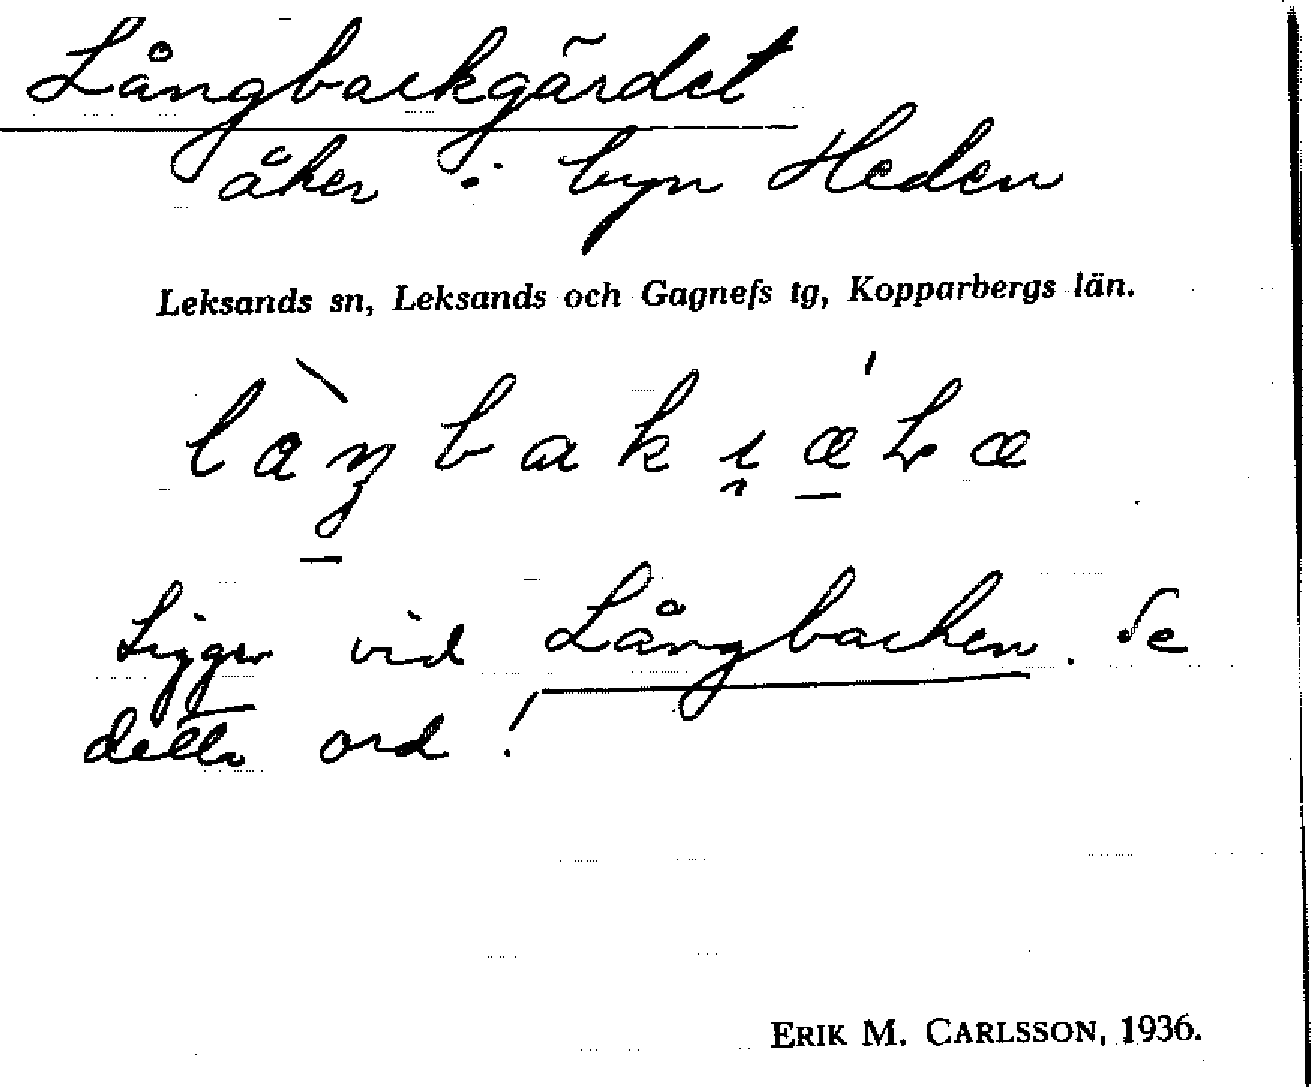 Långbackgärdet
åker i byn Heden
Leksands sn, Leksands och Gagnefs tg, Kopparbergs län.
Ligger vid Långbacken. Se
detta ord!
ERIK M. CARLSSON, 1936.